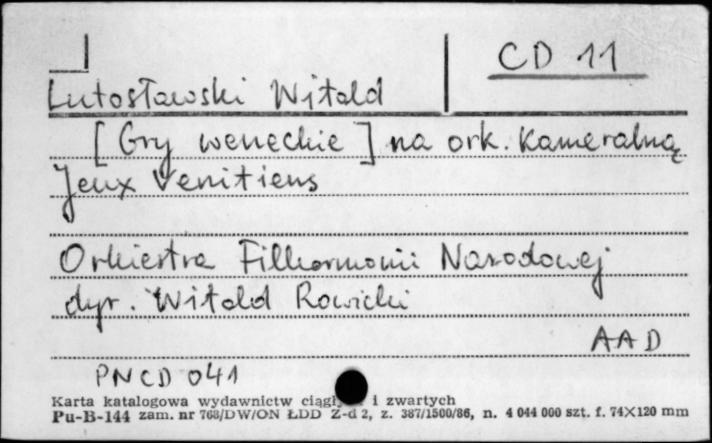 CD 11
Lutosławski Witold
[Gry weneckie] na ork. Kameralną
Jeux Venitiens
Orkiestra Filharmonii Narodowej
dyr. Witold Rowicki
AAD
PNCD 041
Karta katalogowa wydawnictw i zwartych
Pu-B-144 zam. nr 768/DW/ON ŁDD Z-d 2, z. 387/1500/86, n. 4 044 000 szt. f. 74X120 mm